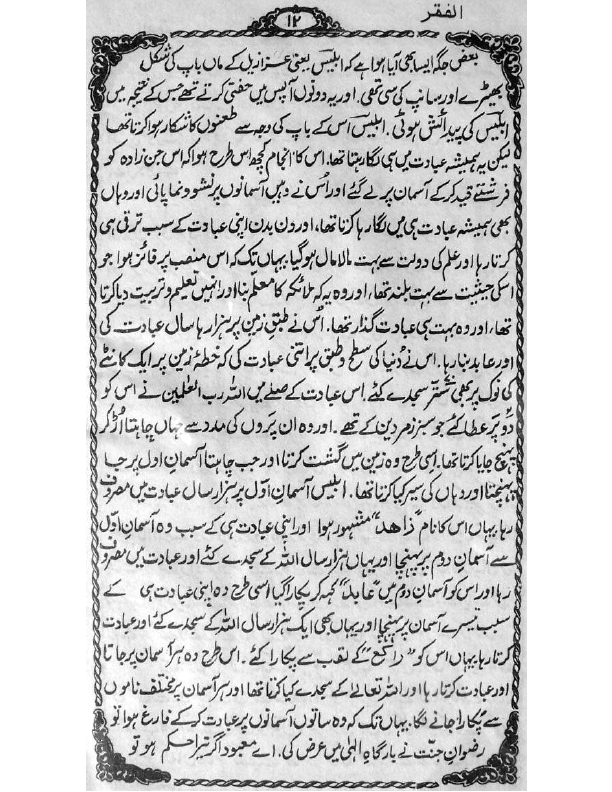 الفقر
۱۲
بعض جگہ ایسا بھی آیا ہوا ہے کہ ابلیس یعنی عزازیل کے ماں باپ کی شکل
بھیڑیے اور سانپ کی سی تھی۔ اور یہ دونوں آپس میں جفتی کرتے تھے جس کے نتیجہ میں
ابلیس کی پیدائش ہوئی۔ ابلیس اس کے باپ کی وجہ سے طعنوں کا شکار ہوا کرتا تھا
لیکن یہ ہمیشہ عبادت میں ہی لگا رہتا تھا۔ اس کا انجام کچھ اس طرح ہوا کہ اس جن زادہ کو
فرشتے قید کر کے آسمان پر لے گئے اور اُس نے وہیں آسمانوں پر نشوونما پائی اور وہاں
بھی ہمیشہ عبادت ہی میں لگا رہا کرتا تھا، اور دن بدن اپنی عبادت کے سبب ترقی ہی
کرتا رہا اور علم کی دولت سے بہت مالا مال ہو گیا۔ یہاں تک کہ اس منصب پر فائز ہوا جو
اسکی حیثیت سے بہت بلند تھا، اور وہ یہ کہ ملائکہ کا معلّم بنا اور انہیں تعلیم و تربیت دیا کرتا
تھا، اور وہ بہت ہی عبادت گذار تھا۔ اُس نے طبقِ زمین پر ہزار ہا سال عبادت کی
اور عابد بنا رہا۔ اس نے دُنیا کی سطح و طبق پر اتنی عبادت کی کہ خطۂ زمین پر ایک کانٹے
کی نوک پر بھی ستّر سجدے کئے۔ اس عبادت کے صلے میں اللہ رب العٰلمین نے اس کو
دو پر عطا کئے جو سبز زمردین کے تھے۔ اور وہ ان پروں کی مدد سے جہاں چاہتا اُڑ کر
پہنچ جایا کرتا تھا۔ اسی طرح وہ زمین میں گشت کرتا اور جب چاہتا آسمانِ اول پر جا
پہنچتا اور وہاں کی سیر کیا کرتا تھا۔ ابلیس آسمانِ اوّل پر ہزار سال عبادت میں مصروف
رہا۔ یہاں اس کا نام "زاھد" مشہور ہوا اور اپنی عبادت ہی کے سبب وہ آسمانِ اوّل
سے آسمانِ دوم پر پہنچا اور یہاں ہزار سال اللہ کے سجدے کئے اور عبادت میں مصروف
رہا اور اس کو آسمانِ دوم میں "عابد" کہہ کر پکارا گیا اسی طرح وہ اپنی عبادت ہی کے
سبب تیسرے آسمان پر پہنچا اور یہاں بھی ایک ہزار سال اللہ کے سجدے کئے اور عبادت
کرتا رہا یہاں اس کو "راکع" کے لقب سے پکارا کئے۔ اس طرح وہ ہر آسمان پر جاتا
اور عبادت کرتا رہا اور اللہ تعالےٰ کے سجدے کیا کرتا تھا اور ہر آسمان پر مختلف ناموں
سے پکارا جانے لگا۔ یہاں تک کہ وہ ساتوں آسمانوں پر عبادت کر کے فارغ ہوا تو
رضوانِ جنّت نے بارگاہِ الٰہی میں عرض کی، اے معبود اگر تیرا حکم ہو تو